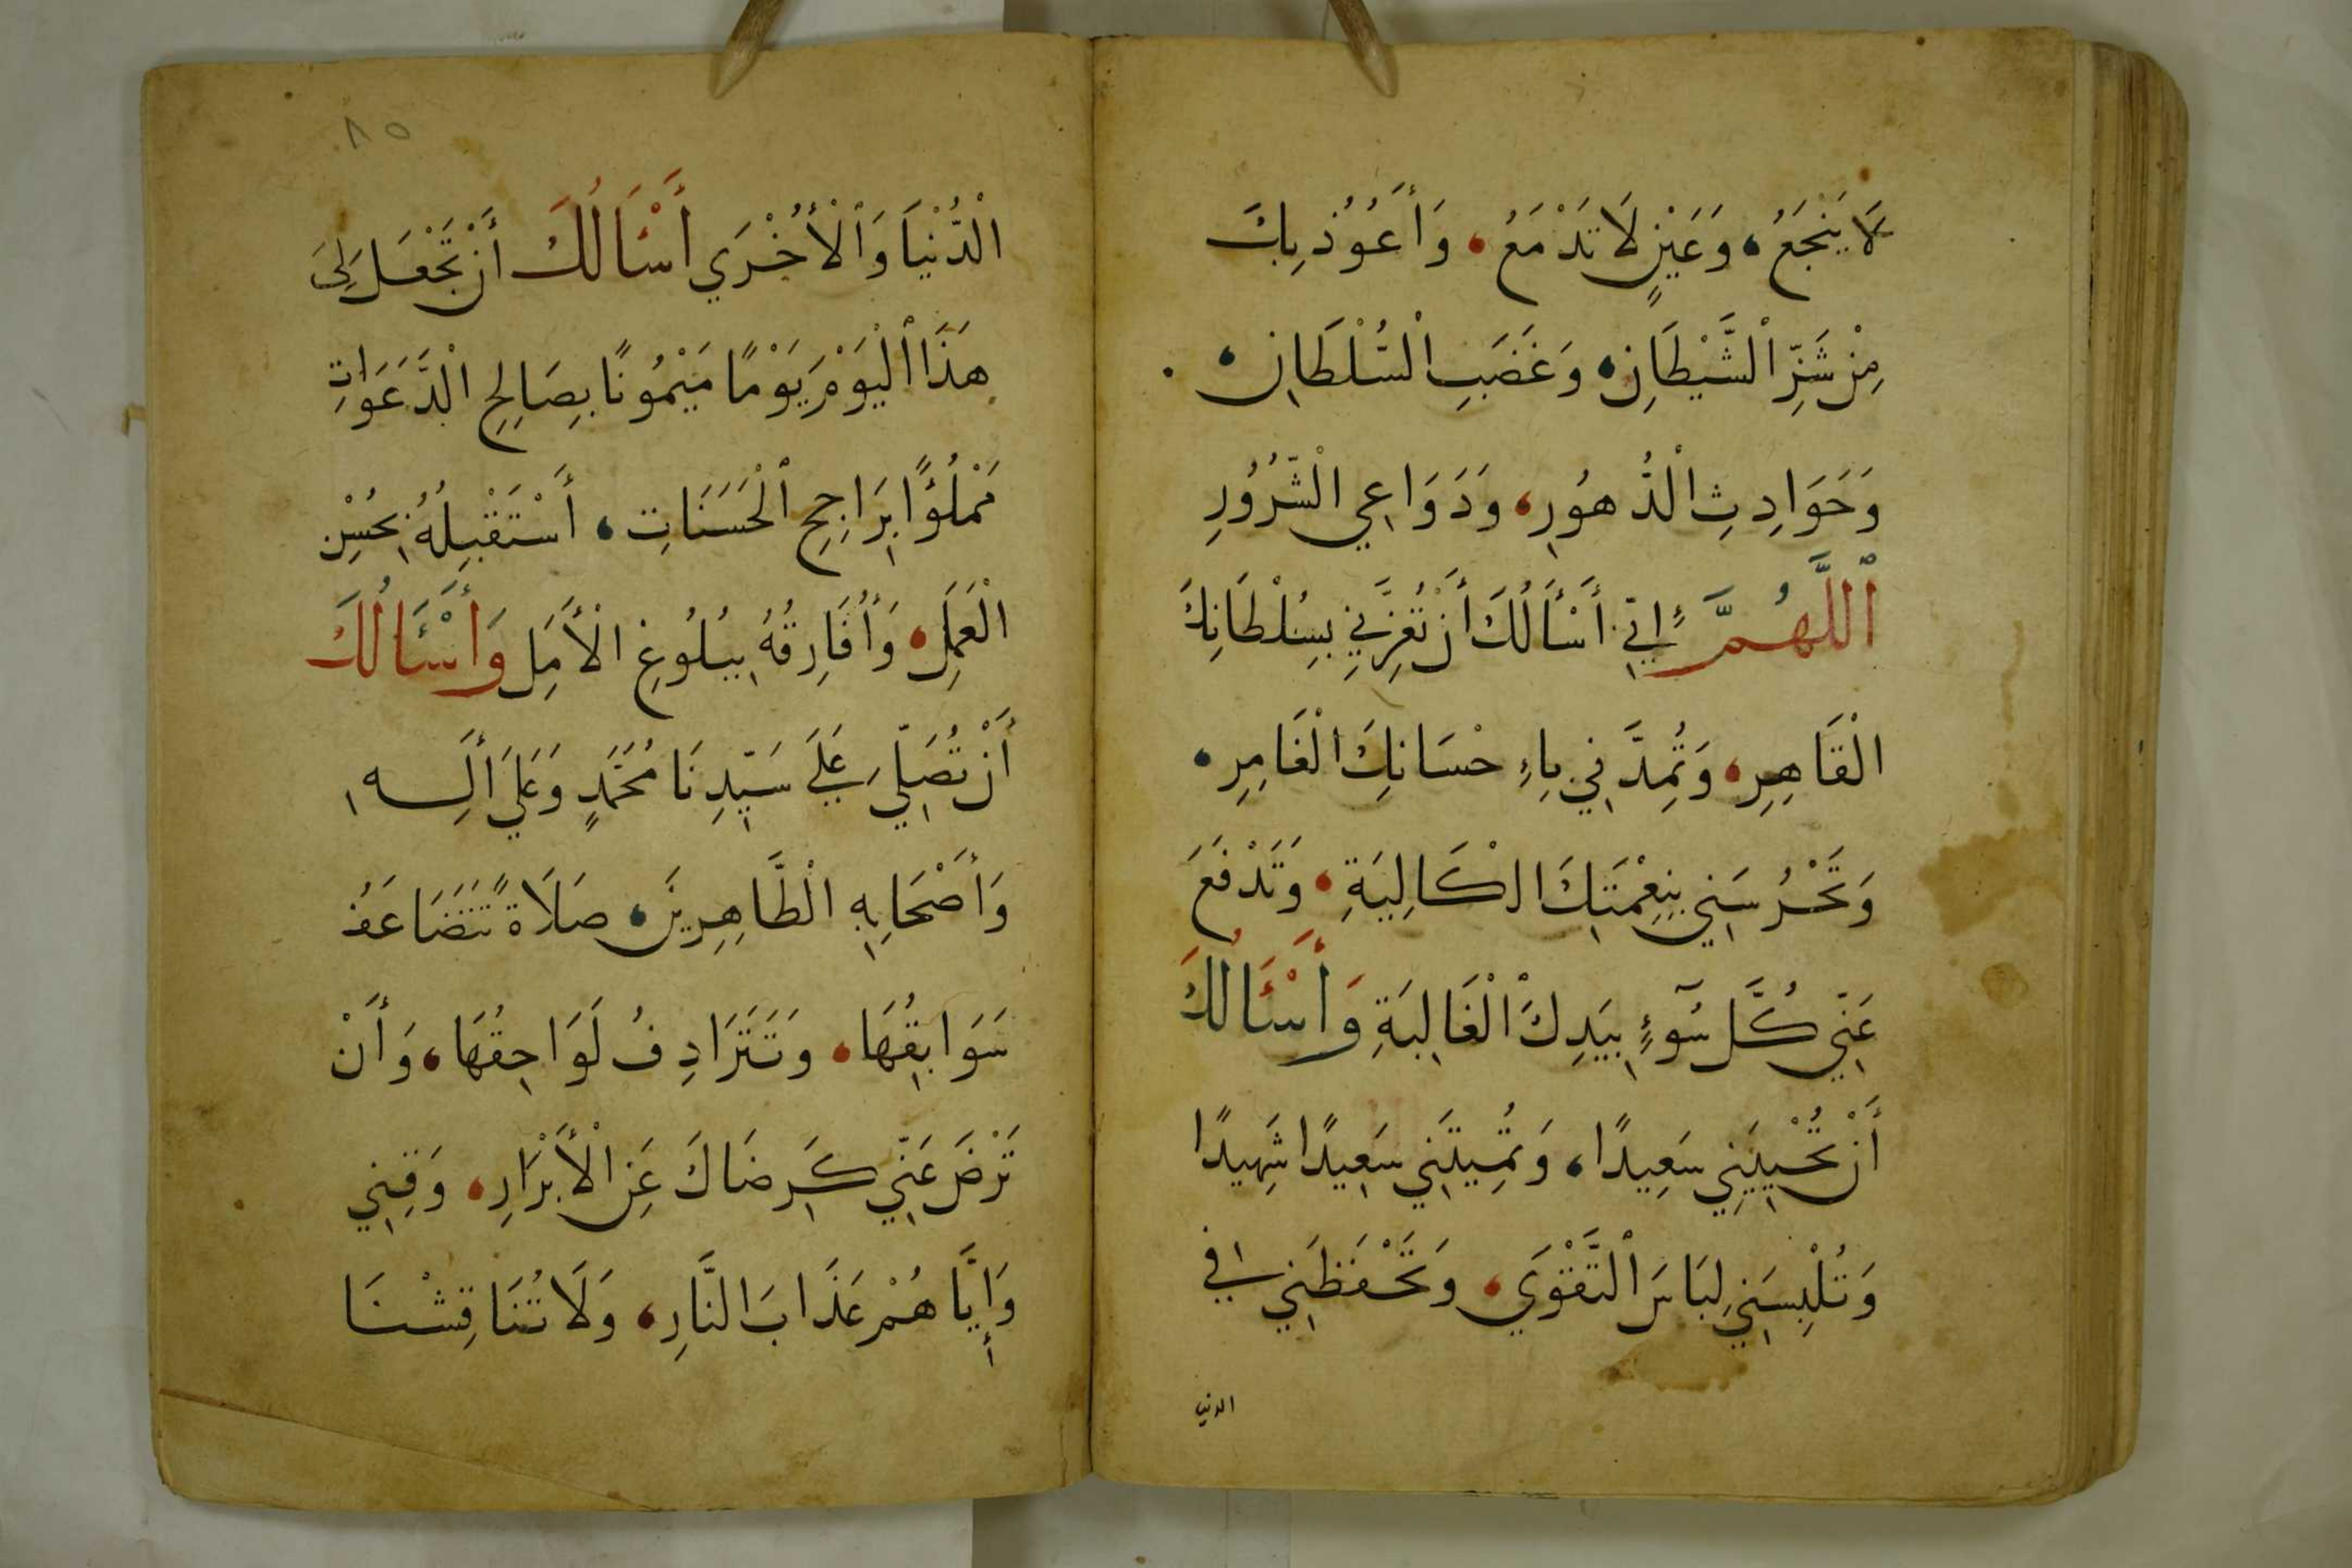 لَا يَنْجَعُ، وَعَيْنٍ لَا تَدْمَعُ، وَأَعُوُذ بِكَ
مِنْ شَرِّ الْشَّيْطَانِ، وَغَضَبِ الْسُّلْطَانِ،
وَحَوَادِثِ الْدُّهوُرِ، وَدَوَاعِي الْشّرُوُرِ
اَللَّهُمَّ إِنّي أَسْأَلُكَ أَنْ تُعِزَّنِي بِسُلْطَانِكَ
الْقَاهِرِ، وَتُمِدَّنِي بِإِحْسَانِكَ الْغَامِرِ،
وَتَحْرُسَنِي بِنِعْمَتِكَ الْكَالِيَةِ، وَتَدْفَعَ
عَنّي كُلَّ سُوٓءٍ بِيَدِكَ الْغَالِبَةِ وَأَسْئَالُكَ
أَنْ تُحْيِيَنِي سَعِيدًا، وَتُمِيتَنِي سَعِيدًا شَهِيدًا
وَتُلْبِسَنِي لِبَاسَ الْتَّقْوَي، وَتَحْفَظَنِي فِي
الدنيا
٨٥
الْدُّنْيَا وَالْأُخْرَي أَسْئَالُكَ أَنْ تَجْعَلَ لِيَ
هَذَا الْيَوْمَ يَوْمًا مَيْمُونًا بِصَالِحِ الْدَّعَوَاتِ
مَمْلُؤًا بِرَاجِحِ الْحَسَنَاتِ، أَسْتَقْبِلُهُ بِحُسْنِ
الْعَمَلِ، وَأُفَارِقُهُ بِبُلُوغِ الْأَمَلِ وَأَسْئَالُكَ
أَنْ تُصَلّيَ عَلَي سَيّدِنَا مُحَمَّدٍ وَعَلَي أَلِه
وَأَصْحَابِهِ الْطَّاهِرِينَ، صَلَاةً تَتَضَاعَفُ
سَوَابِقُهَا، وَتَتَرَادِفُ لَوَاحِقُهَا، وَأَنْ
تَرْضَ عَنّي كَرِضَاكَ عَنِ الْأَبْرَارِ، وَقِنِي
وَإِيَّاهُمْ عَذَابَ النَّارِ، وَلَا تُنَاقِشْنَا